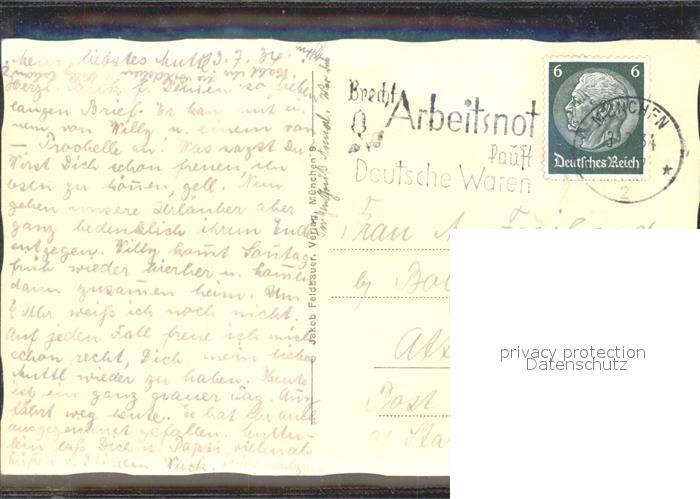 Mein liebstes Muttl 3.7.34.
Herzl. Dank f. Deinen so lieben
langen Brief. Er kam mit
nem von Willy u. einem von
an. Was sagst Du
Wirst Dich schon freuen,
zu können, gell. Nun
gehen unsere Urlauber aber
ganz bedenklich ihrem Ende
entgegen. Willy kommt Sonntag
früh wieder hierher u. kommen
dann zusammen heim. Um
Uhr weiß ich noch nicht.
Auf jeden Fall freue ich mich
schon recht, Dich, mein liebes
Muttl wieder zu haben. Heute
ist ein ganz grauer Tag.
fährt weg heute. Es hat ihr auch
ausgezeichnet gefallen.
lein laß Dich u. Pappi vielmals
küssen v. Deinem
Jakob Feldbauer, Verlag, München 9
Brecht
Arbeitsnot
kauft
Deutsche Waren
6 6
Deutsches Reich
MÜNCHEN
34
2
Frau A.
by
Post
a/ Sta
privacy protection
Datenschutz